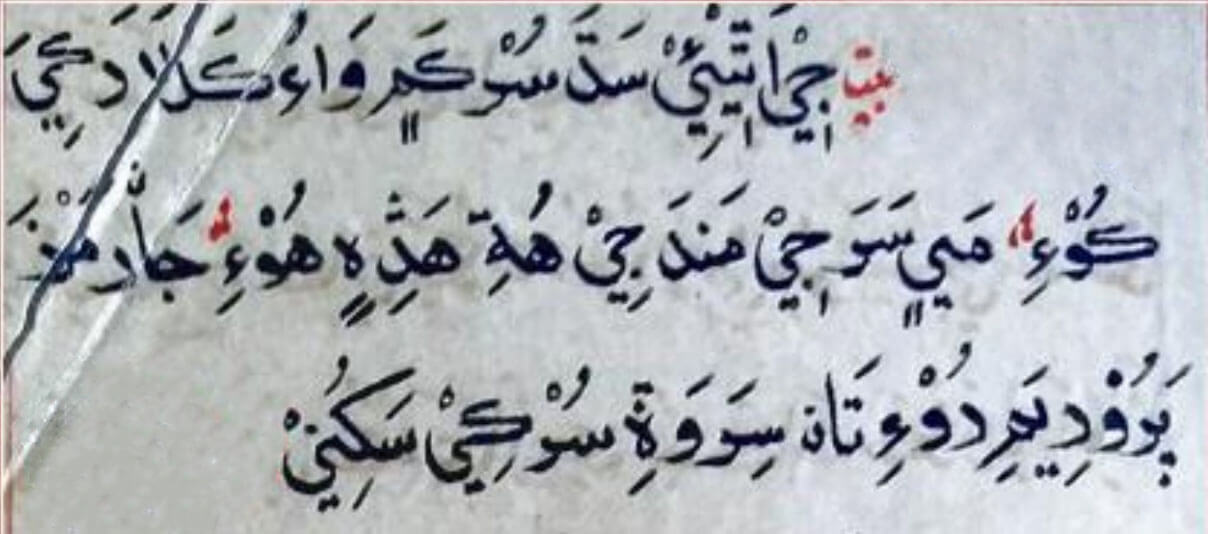 بيت جِيْ اَتِيْئِيْ سَدَّ سُوْ كَرٍ وَاءُ كَلَالَا دَكِيَ
كُوْءِ، مَيٍ سَرَ جِيْ مَندَجِيْ هُةِ هَڎِهٍ هُوْءِ، جَان مَنْذَ
پَرُوْدِ يَرِ دُوْءِ تَان سِرَ وَةِ سُوْ كِيْ سَكِيُنْ